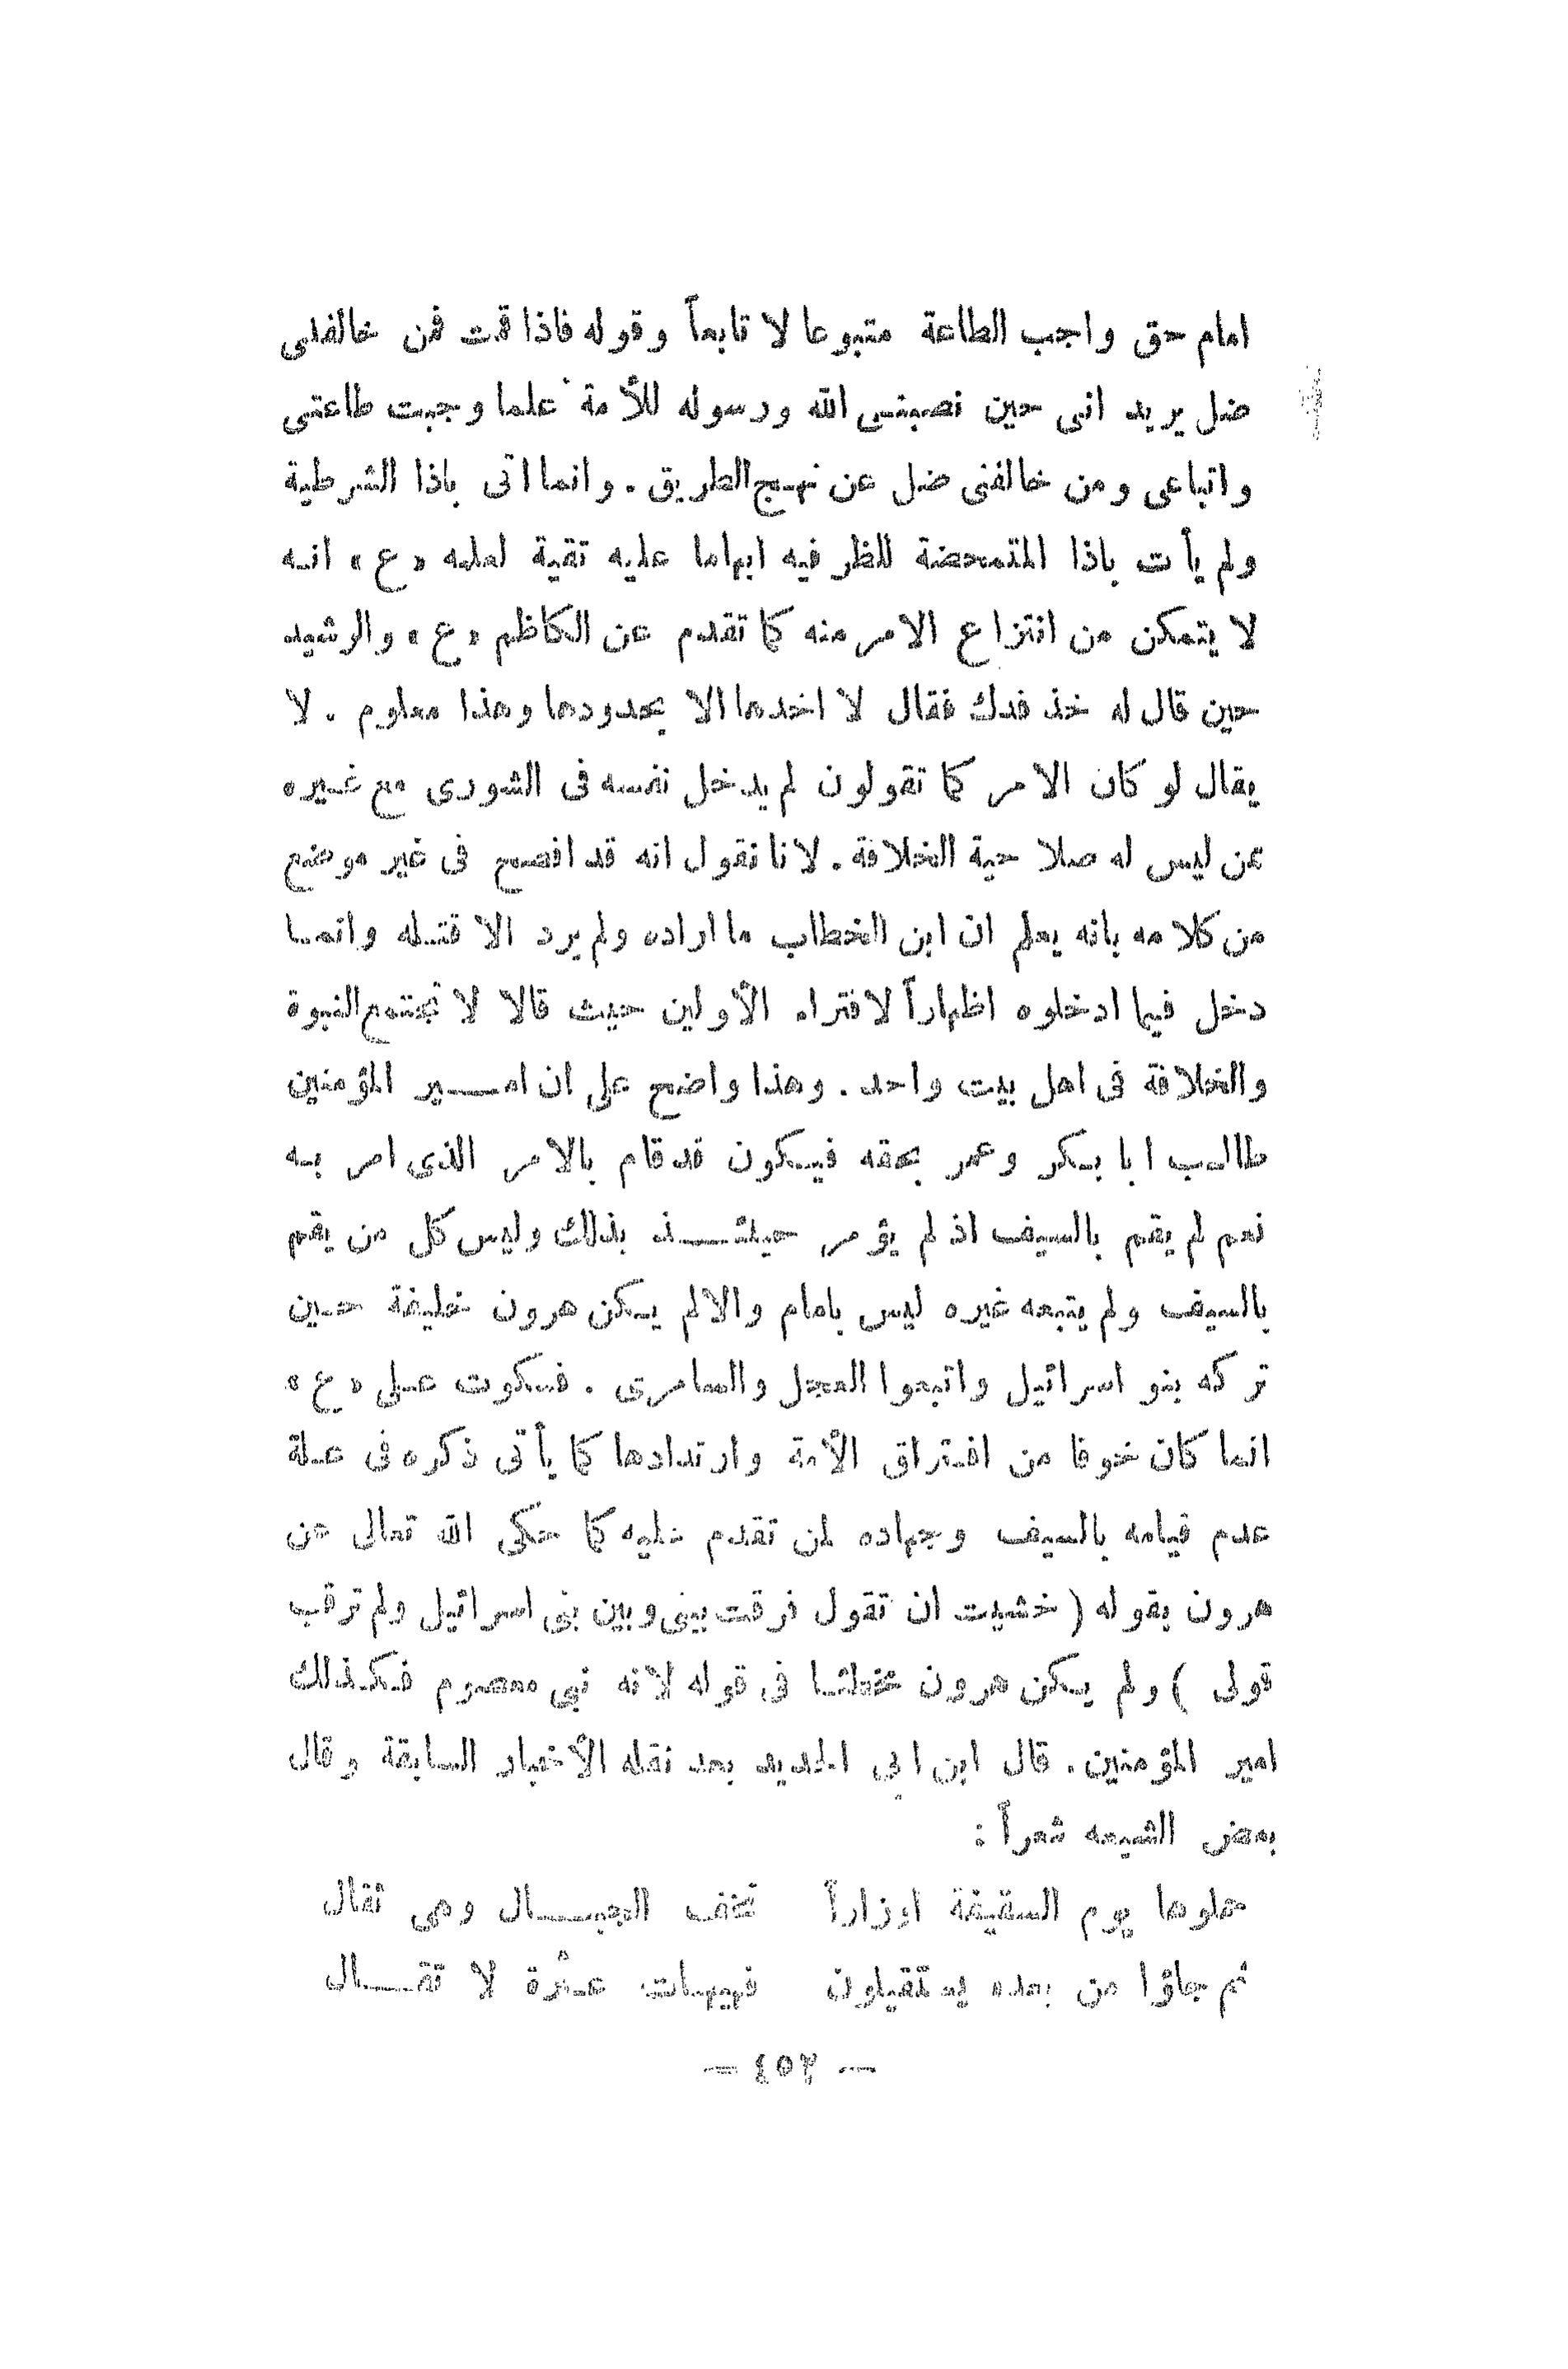 امام حق واجب الطاعة متبوعا لا تابعاً وقوله فاذا قمت فمن خالفنى
ضل يريد انى حين نصبنى الله ورسوله للأمة علما وجبت طاعتى
واتباعى ومن خالفنى ضل عن نهج الطريق . وانما اتى باذا الشرطية
ولم يأت باذا المتمحضة للظرفيه ابهاما عليه تقية لعلمه «ع» انه
لا يتمكن من انتزاع الامر منه كما تقدم عن الكاظم «ع» والرشيد
حين قال له خذ فدك فقال لا اخدها الا بحدودها وهذا معلوم . لا
يقال لو كان الامر كما تقولون لم يدخل نفسه فى الشورى مع غيره
ممن ليس له صلاحية الخلافة . لانا نقول انه قد افصح فى غير موضع
من كلامه بانه يعلم ان ابن الخطاب ما اراده ولم يرد الا قتله وانما
دخل فيما ادخلوه اظهاراً لافتراء الأولين حيث قالا لا تجتمع النبوة
والخلافة فى اهل بيت واحد . وهذا واضح على ان امير المؤمنين
طالب ابا بكر وعمر بحقه فيكون قد قام بالامر الذى امر به
نعم لم يقم بالسيف اذ لم يؤمر حينئذ بذلك وليس كل من يقم
بالسيف ولم يتبعه غيره ليس بامام والالم يكن هرون خليفة حين
تركه بنو اسرائيل واتبعوا العجل والسامرى . فسكوت على «ع»
انما كان خوفا من افتراق الأمة وارتدادها كما يأتى ذكره فى علة
عدم قيامه بالسيف وجهاده لمن تقدم عليه كما حكى الله تعالى عن
هرون بقوله ( خشيت ان تقول فرقت بينى وبين بنى اسرائيل ولم ترقب
قولى ) ولم يكن هرون مخطئا فى قوله لانه نبى معصوم فكذلك
امير المؤمنين . قال ابن ابى الحديد بعد نقله الأخبار السابقة وقال
بعض الشيعه شعراً :
حملوها يوم السقيفة اوزاراً تخف الجبال وهى ثقال
ثم جاؤا من بعده يستقيلون فهيهات عثرة لا تقال
— ٤٥٢ —